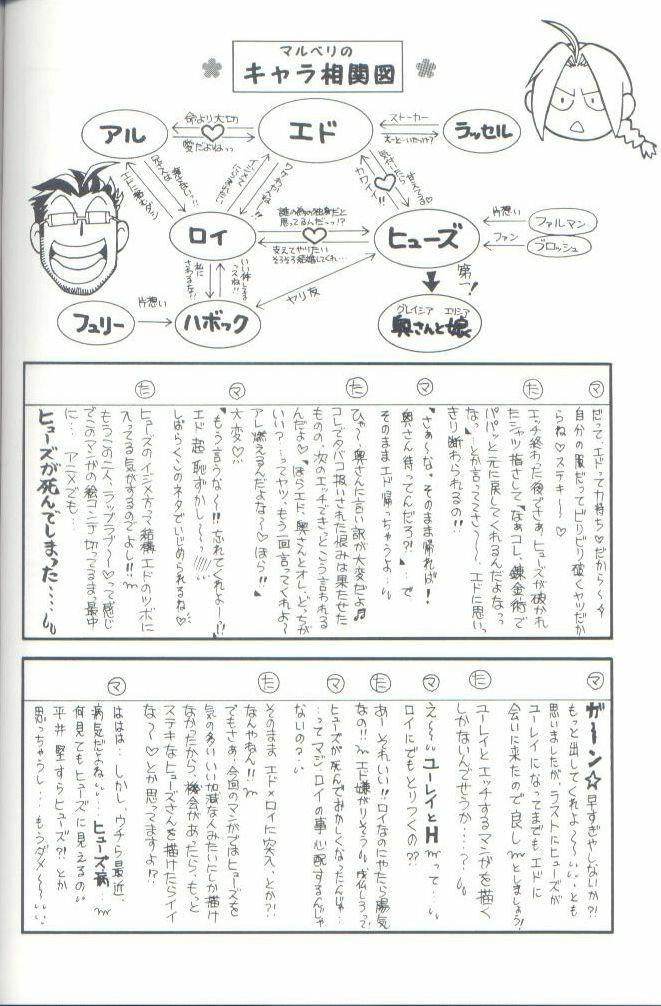 マルベリの
キャラ相関図
アル
命より大切
愛だよねっっ
エド
ストーカー
えーといたっけ?
ラッセル
ロイ
誰の為の独身だと
思ってるんだーっ!?
支えてやりたい
そろそろ結婚してくれ…
ヒューズ
カワイイ!!
片想い
ファルマン
ファン
ブロッシュ
第一!
グレイシア エリシア
奥さんと娘
いい体してる
私に
さわるな!!
ヤリ友
フュリー
片想い
ハボック
だって、エドって力持ち♡だから〜
自分の服だってビリビリ破くヤツだか
らね♡ステキー♡
た
エッチ終わった後でさぁ、ヒューズが破かれ
たシャツ指さして「なぁコレ、錬金術で
パパッと元に戻してくれるんだよなっっ
なっ」…とか言ってさ〜、エドに思いっ
きり断わられるの!!
マ
「さぁ〜な。そのまま帰れば!
奥さん待ってんだろ?!」…で
そのままエド帰っちゃうよ…
た
ひゃ〜、奥さんに言い訳が大変だよ♬
コレでタバコ扱いされた恨みは果たせた
ものの、次のエッチできっとこう言われる
んだよ♡「ほらエド、奥さんとオレ、どっちが
いい?…ってヤツ、もう一回言ってくれよ〜
アレ燃えるんだよな〜♡ほら!!」
マ
大変♡
「もう言うな〜!!忘れてくれよー!?」
エド超恥ずかし〜
しばらくこのネタでいじめられるね♡
た
ヒューズのイジメカってば結構エドのツボに
入ってる気がするのでよし!!
もうこの二人、ラップラブ〜♡って感じ
でこのマンガの絵コンテ切ってるまっ最中
に…アニメでも…
ヒューズが死んでしまった…
マ
ガーン☆早すぎやしないか?!
もっと出してくれよ〜…とも
思いましたが、ラストにヒューズが
ユーレイになってまでもエドに
会いに来たので良しとしましょう!
た
ユーレイとエッチするマンガを描く
しかないんでせうか…?
マ
え〜ユーレイとHって…
ロイにでもとりつくの??
た
あーそれいい!!ロイなのにやたら陽気
なの!!エド嫌がりそう「成仏しろって」
マ
ヒューズが死んでおかしくなったんじゃ…
…ってマジロイの事心配するんじゃ
ないの?…
た
そのままエド×ロイに突入、とか?!
なんやねん!!
でもさぁ、今回のマンガではヒューズを
気の多いいい加減な人みたいにしか描け
なかったから、機会があったら、もっと
ステキなヒューズさんを描けたらイイ
な〜♡とか思ってますよ!?
マ
ははは…しかし、ウチら最近、
病気だよね… ヒューズ病…
何見てもヒューズに見えるの
平井堅すらヒューズ?!とか
思っちゃうし…もうダメ〜